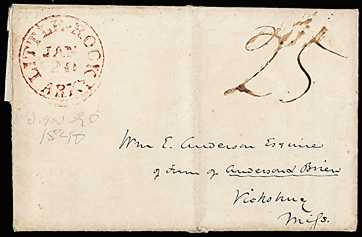 LITTLE-ROCK
JAN
24
ARK
25
1840
Wm E. Anderson Esquire
of firm of Anderson & Brien
Vicksburg
Miſs.